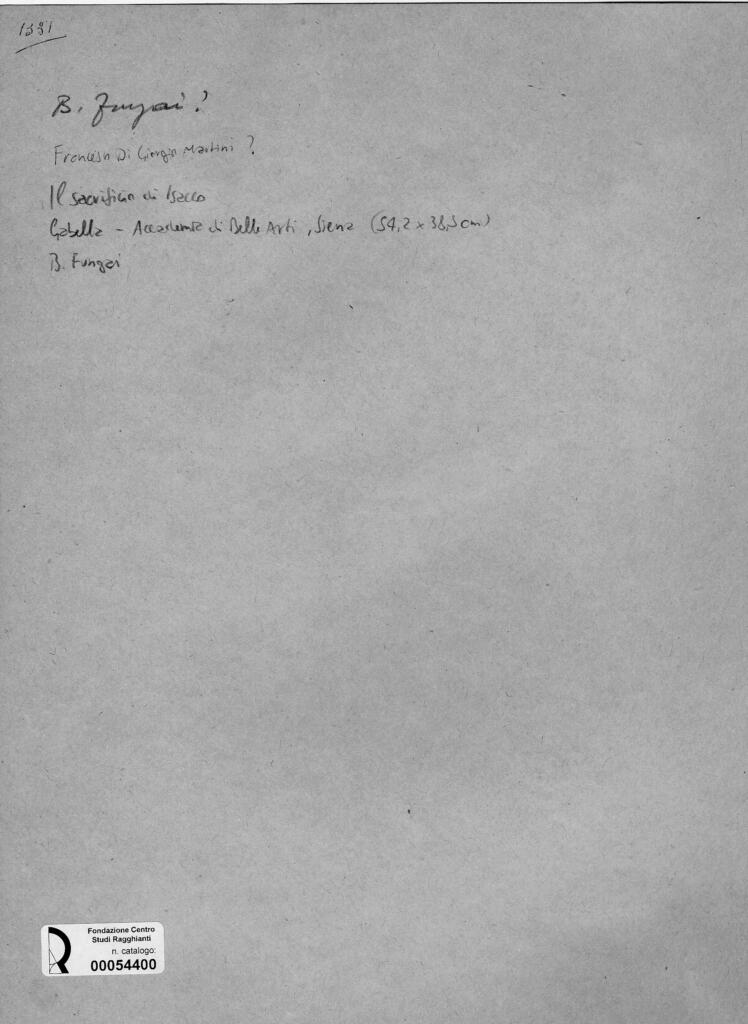 1331
B. Fungai?
Francesco Di Giorgio Martini?
Il sacrificio di Isacco
Gabella - Accademia di Belle Arti, Siena (54,2 x 38,5 cm)
B. Fungai
Fondazione Centro
Studi Ragghianti
n. catalogo:
00054400